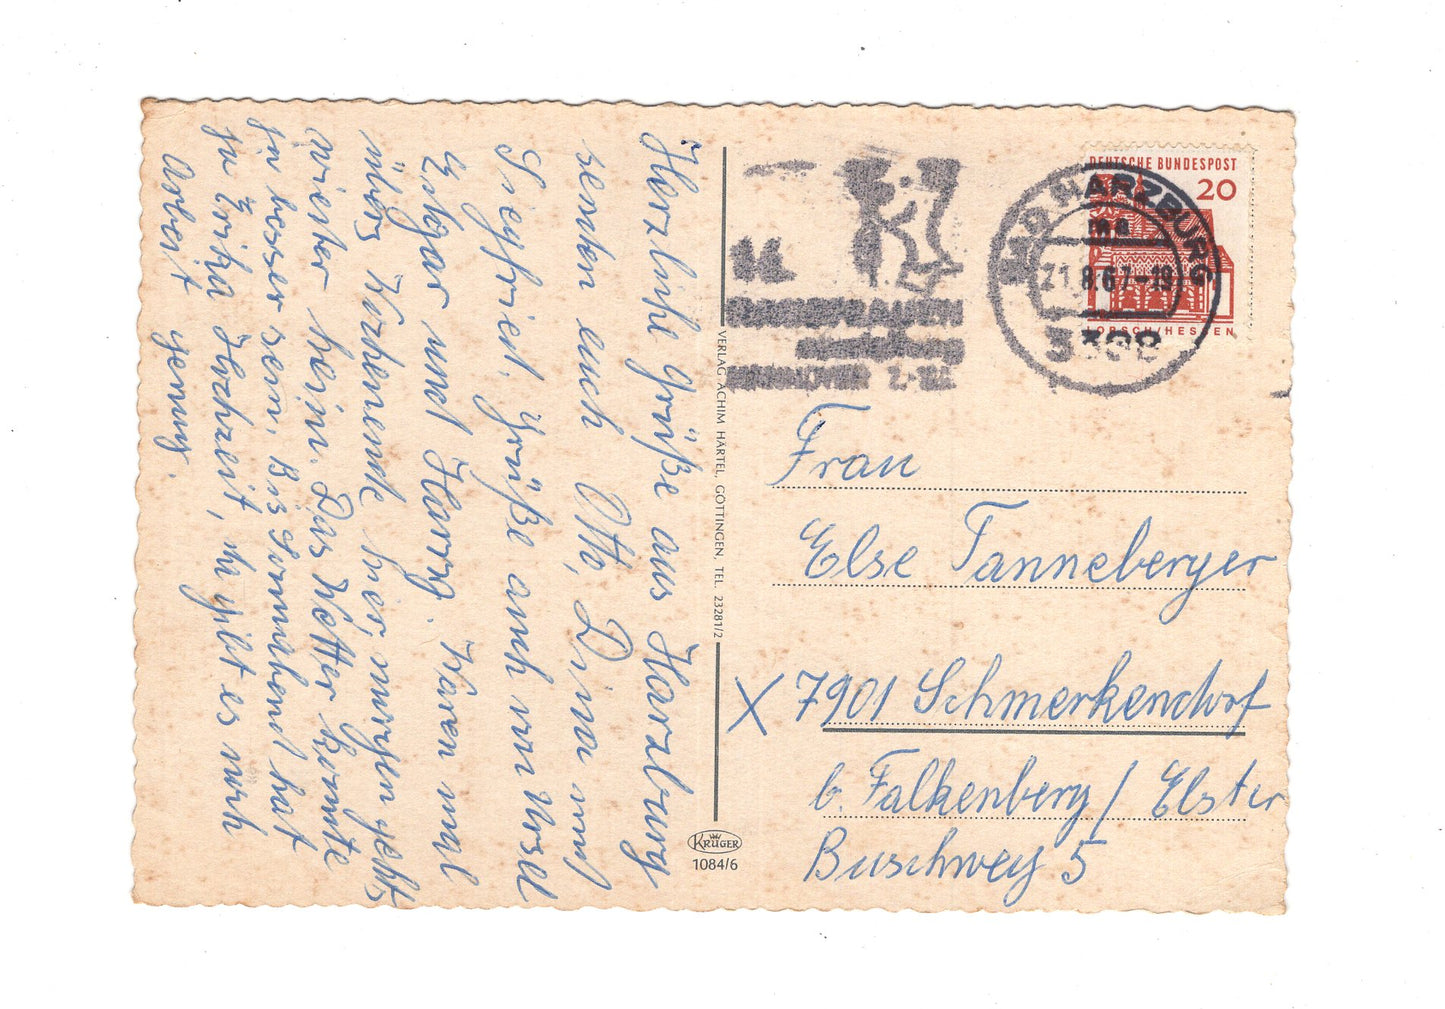 Herzliche Grüße aus Harzburg
senden euch Otto, Dina und
Siegfried. Grüße auch von Ursel
Edgar und Harry. Waren mal
übers Wochenende hier, morgen gehts
wieder heim. Das Wetter könnte
ja besser sein. Bis Sonnabend hat
ja Erika Hochzeit, da gibt es noch
Arbeit genug.
VERLAG ACHIM HÄRTEL, GÖTTINGEN, TEL. 23281/2
KRÜGER
1084/6
DEUTSCHE BUNDESPOST
20
LORSCH/HESSEN
BAD HARZBURG
21.8.67-19
3388
HANNOVER
Frau
Else Tanneberger
X 7901 Schmerkendorf
b. Falkenberg / Elster
Buschweg 5